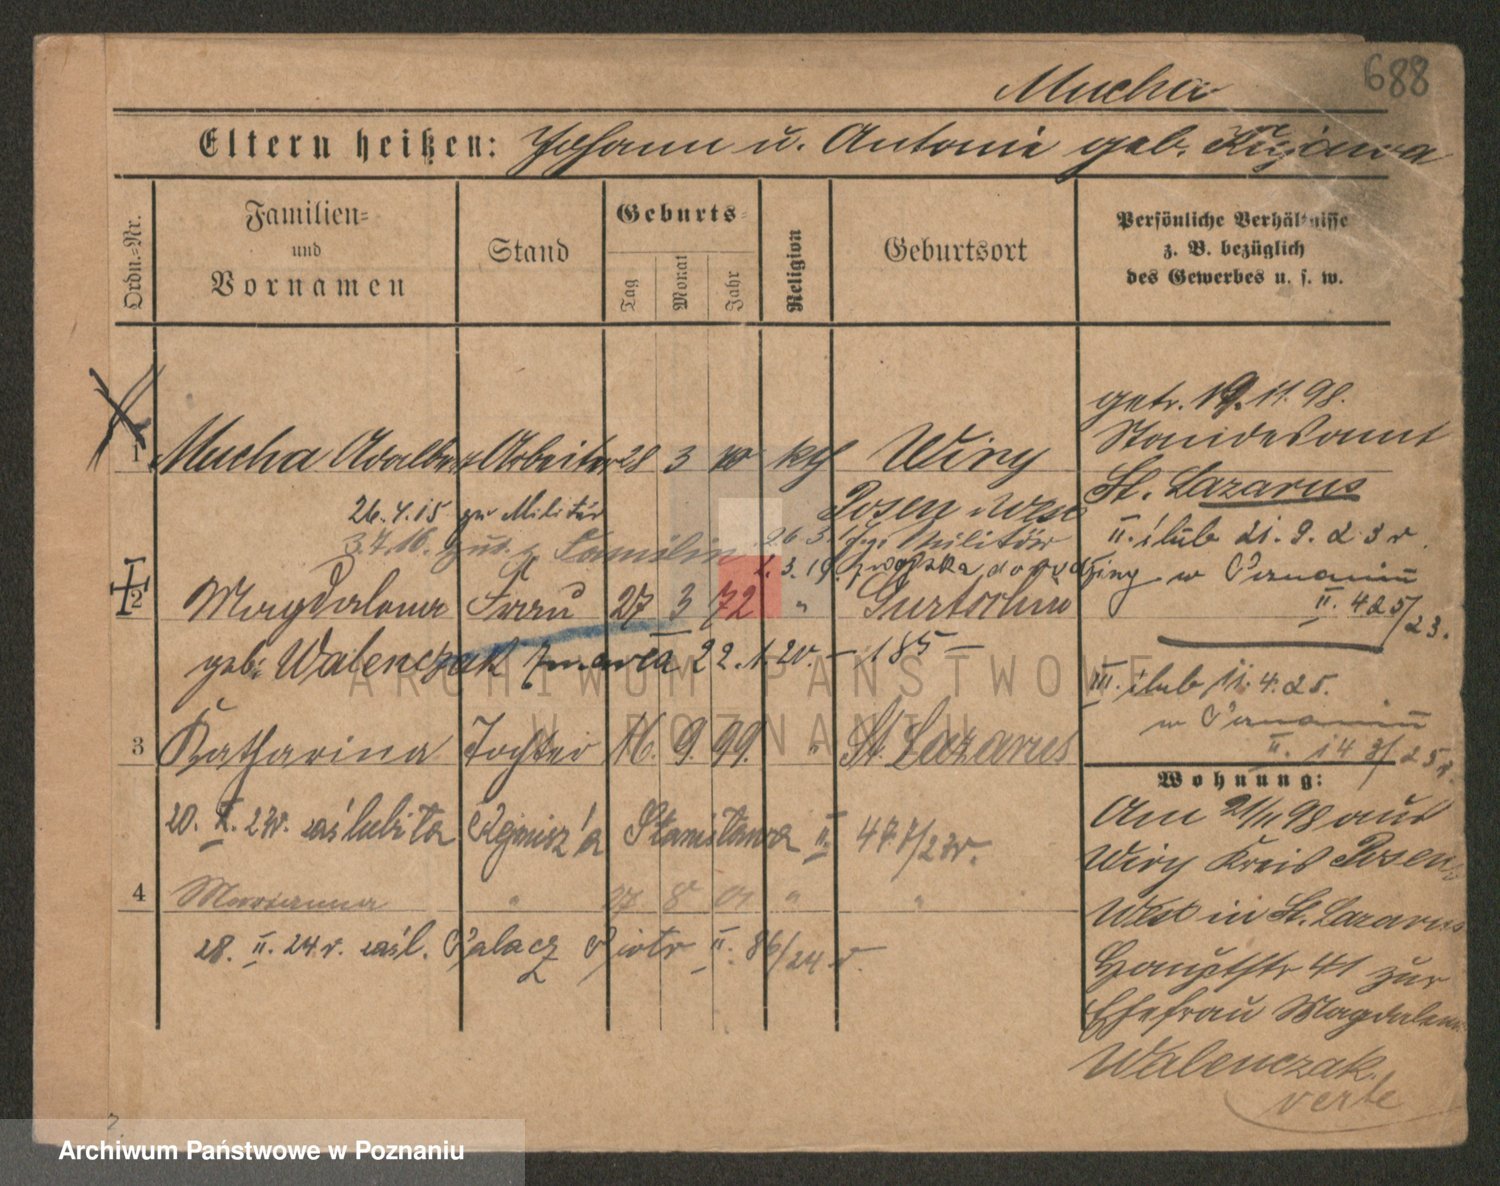 688
Mucha
Eltern heißen: Johann u. Antonie geb. Kujawa
Ordn.=Nr.
Familien=
und
Vornamen
Stand
Geburts=
Tag
Monat
Jahr
Religion
Geburtsort
Persönliche Verhältnisse
z. B. bezüglich
des Gewerbes u. s. w.
1 Mucha Adalbert Arbeiter 28 3 70 kth Wiry
Posen West
26.4.15 zu Militär
3.7.16. zur. z Familie 26 3. Militär
z wojska
2 Magdalena Frau 27 3 72 " Gurtschin
geb. Walenczak zmarła 22.1.20. – 185 –
3 Katharina Tochter 16. 9. 99. " St. Lazarus
20. X. 23r. zaślubiła Stanisława II. 477/23r.
4 Marianna " 27 8 01 " "
28. II. 24 r. zaśl. Palacz Piotr II. 86/24 r.
getr. 19.11.98.
Standesamt
St. Lazarus
II. ślub 21. 9. 23 r.
w Poznaniu
II. 425/23.
III. ślub 11. 4. 25.
w Poznaniu
II. 143/25 r.
Wohnung:
Am 21/11 98 aus
Wiry Kreis Posen
West in St. Lazarus
Hauptstr 41 zur
Ehefrau Magdalena
Walenczak.
verte
ARCHIWUM PAŃSTWOWE
W POZNANIU
Archiwum Państwowe w Poznaniu